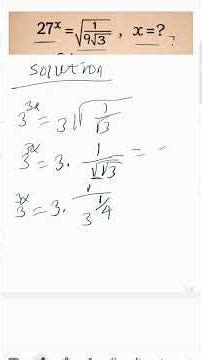 27^x = √(1/(9√3)) , x=? ?
solution
3^3x = 3√(1/√3)
3^3x = 3 · 1/√√3 =
3^3x = 3 · 1/3^(1/4)